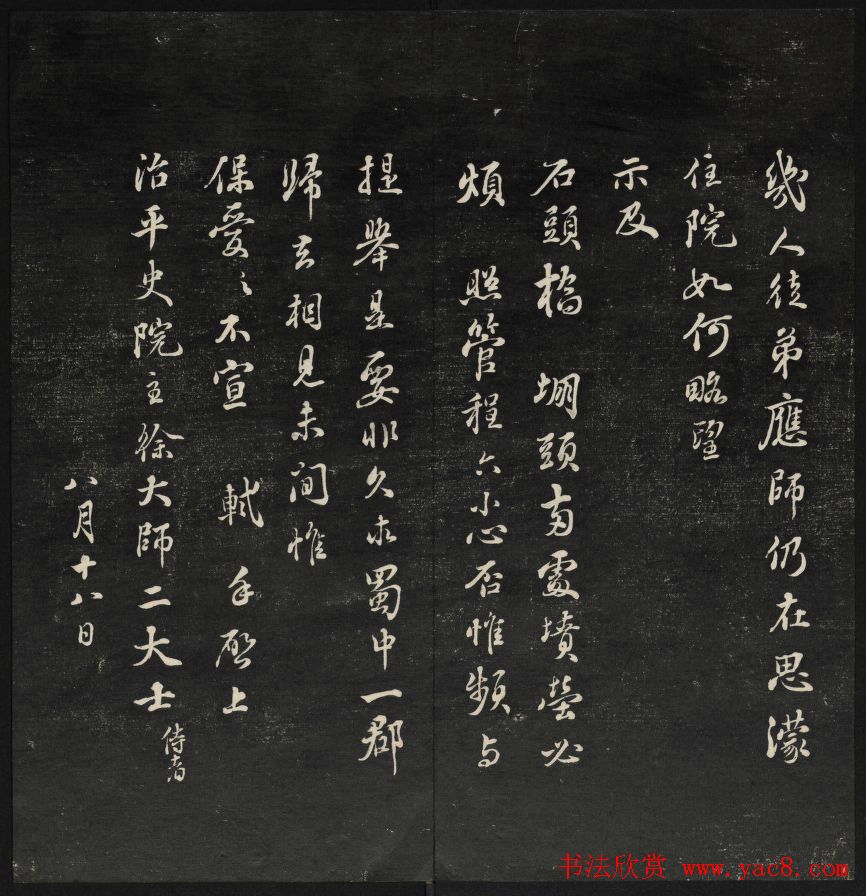 幾人徒弟應師仍在思濛
住院如何略望
示及
石頭橋 堋頭兩處墳塋必
煩 照管程六小心否惟頻与
提舉是要非久求蜀中一郡
歸去相見未間惟
保愛之不宣 軾手啓上
治平史院主徐大師二大士侍者
八月十八日
书法欣赏 www.yac8.com